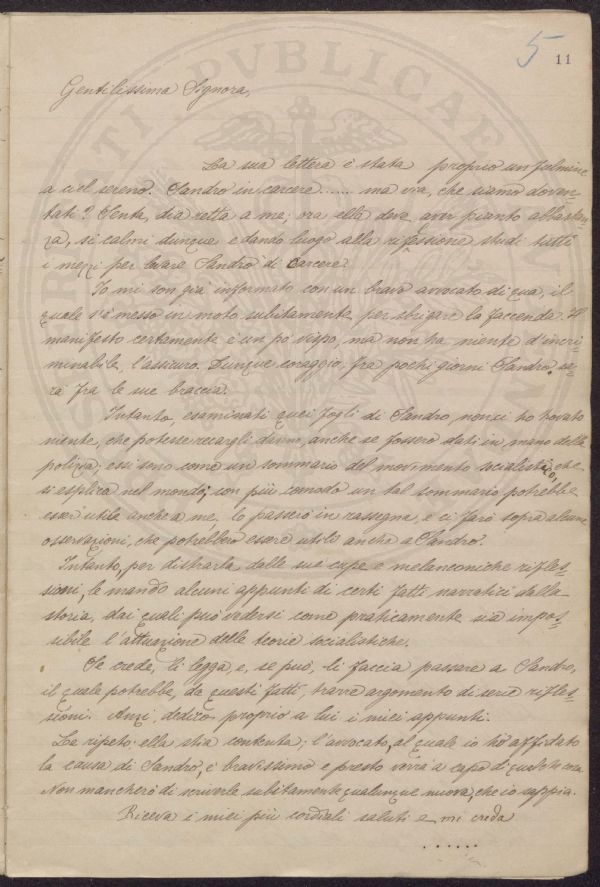 5 11
Gentilissima Signora,
La sua lettera è stata proprio un fulmine
a ciel sereno. Sandro in carcere...... ma via, che siamo doven-
tati? Senta, dia retta a me; ora ella deve aver pianto abbastan-
za, si calmi dunque e dando luogo alla riflessione studi tutti
i mezzi per levare Sandro di Carcere.
Io mi son già informato con un bravo avvocato di qua, il
quale s'è messo in moto subitamente per sbrigare la faccenda. Il
manifesto certamente è un po' vispo, ma non ha niente d'incri-
minabile, l'assicuro. Dunque coraggio; fra pochi giorni Sandro sa-
rà fra le sue braccia.
Intanto, esaminati quei fogli di Sandro, non ci ho trovato
niente, che potesse recargli danni, anche se fossero dati in mano della
polizia; essi sono come un sommario del movimento socialistico, che
si esplica nel mondo; con più comodo un tal sommario potrebbe
esser utile anche a me, lo passerò in rassegna, e ci farò sopra alcune
osservazioni, che potrebbero essere utili anche a Sandro.
Intanto, per distrarla dalle sue cupe e melanconiche rifles-
sioni, le mando alcuni appunti di certi fatti narratici dalla
storia, dai quali può vedersi come praticamente sia impos-
sibile l'attuazione delle teorie socialistiche.
Se crede, li legga, e, se può, li faccia passare a Sandro,
il quale potrebbe, da questi fatti, trarre argomento di serie rifles-
sioni. Anzi, dedico proprio a lui i miei appunti.
Le ripeto: ella stia contenta; l'avvocato, al quale io ho affidato
la causa di Sandro, è bravissimo e presto verrà a capo di qualche cosa.
Non mancherò di scriverle subitamente qualunque nuova, che io sappia.
Riceva i miei più cordiali saluti e mi creda
......